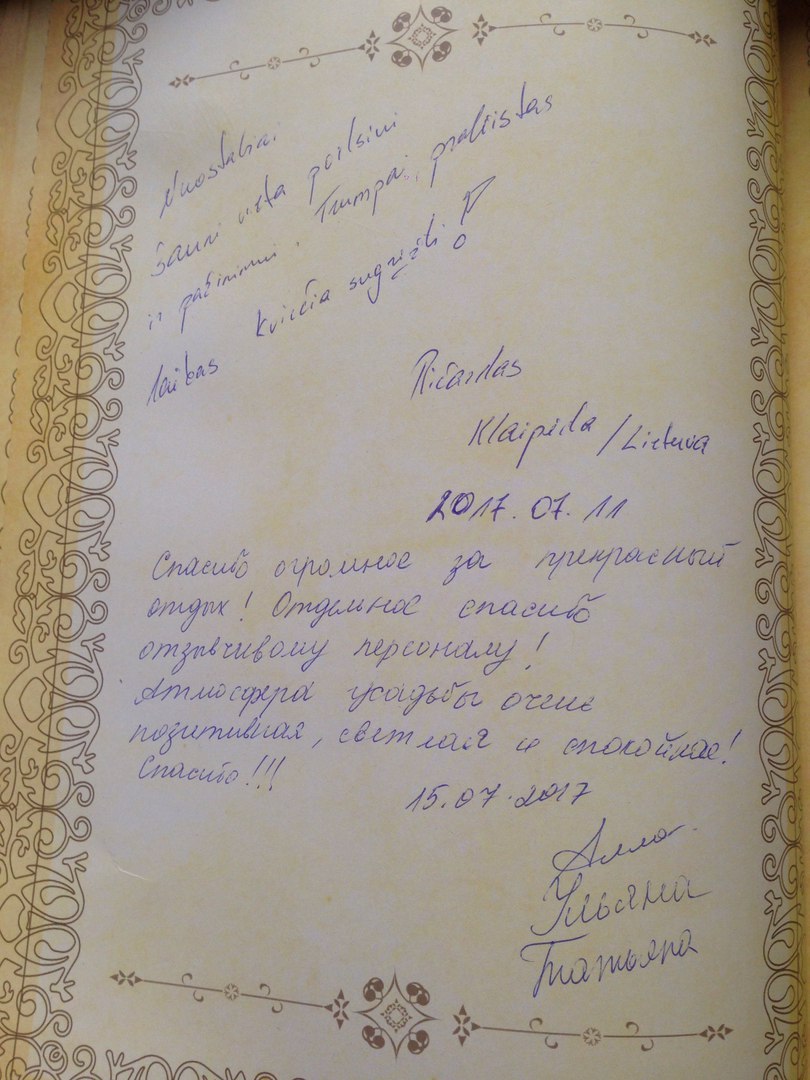 Nuostabu.
Šauni vieta poilsiui
ir pažinimui. Trumpai praleistas
laikas kviečia sugrįžti!
Ričardas
Klaipėda / Lietuva
2017.07.11
Спасибо огромное за прекрасный
отдых! Отдельное спасибо
отзывчивому персоналу!
Атмосфера усадьбы очень
позитивная, светлая и спокойная!
Спасибо!!!
15.07.2017
Алла
Ульяна
Татьяна